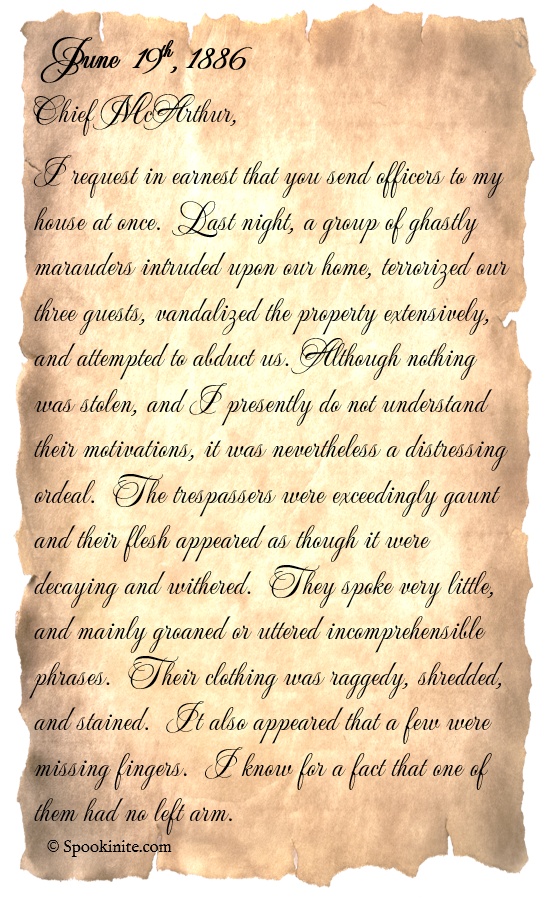 June 19th, 1886
Chief McArthur,
I request in earnest that you send officers to my
house at once. Last night, a group of ghastly
marauders intruded upon our home, terrorized our
three guests, vandalized the property extensively,
and attempted to abduct us. Although nothing
was stolen, and I presently do not understand
their motivations, it was nevertheless a distressing
ordeal. The trespassers were exceedingly gaunt
and their flesh appeared as though it were
decaying and withered. They spoke very little,
and mainly groaned or uttered incomprehensible
phrases. Their clothing was raggedy, shredded,
and stained. It also appeared that a few were
missing fingers. I know for a fact that one of
them had no left arm.
© Spookinite.com